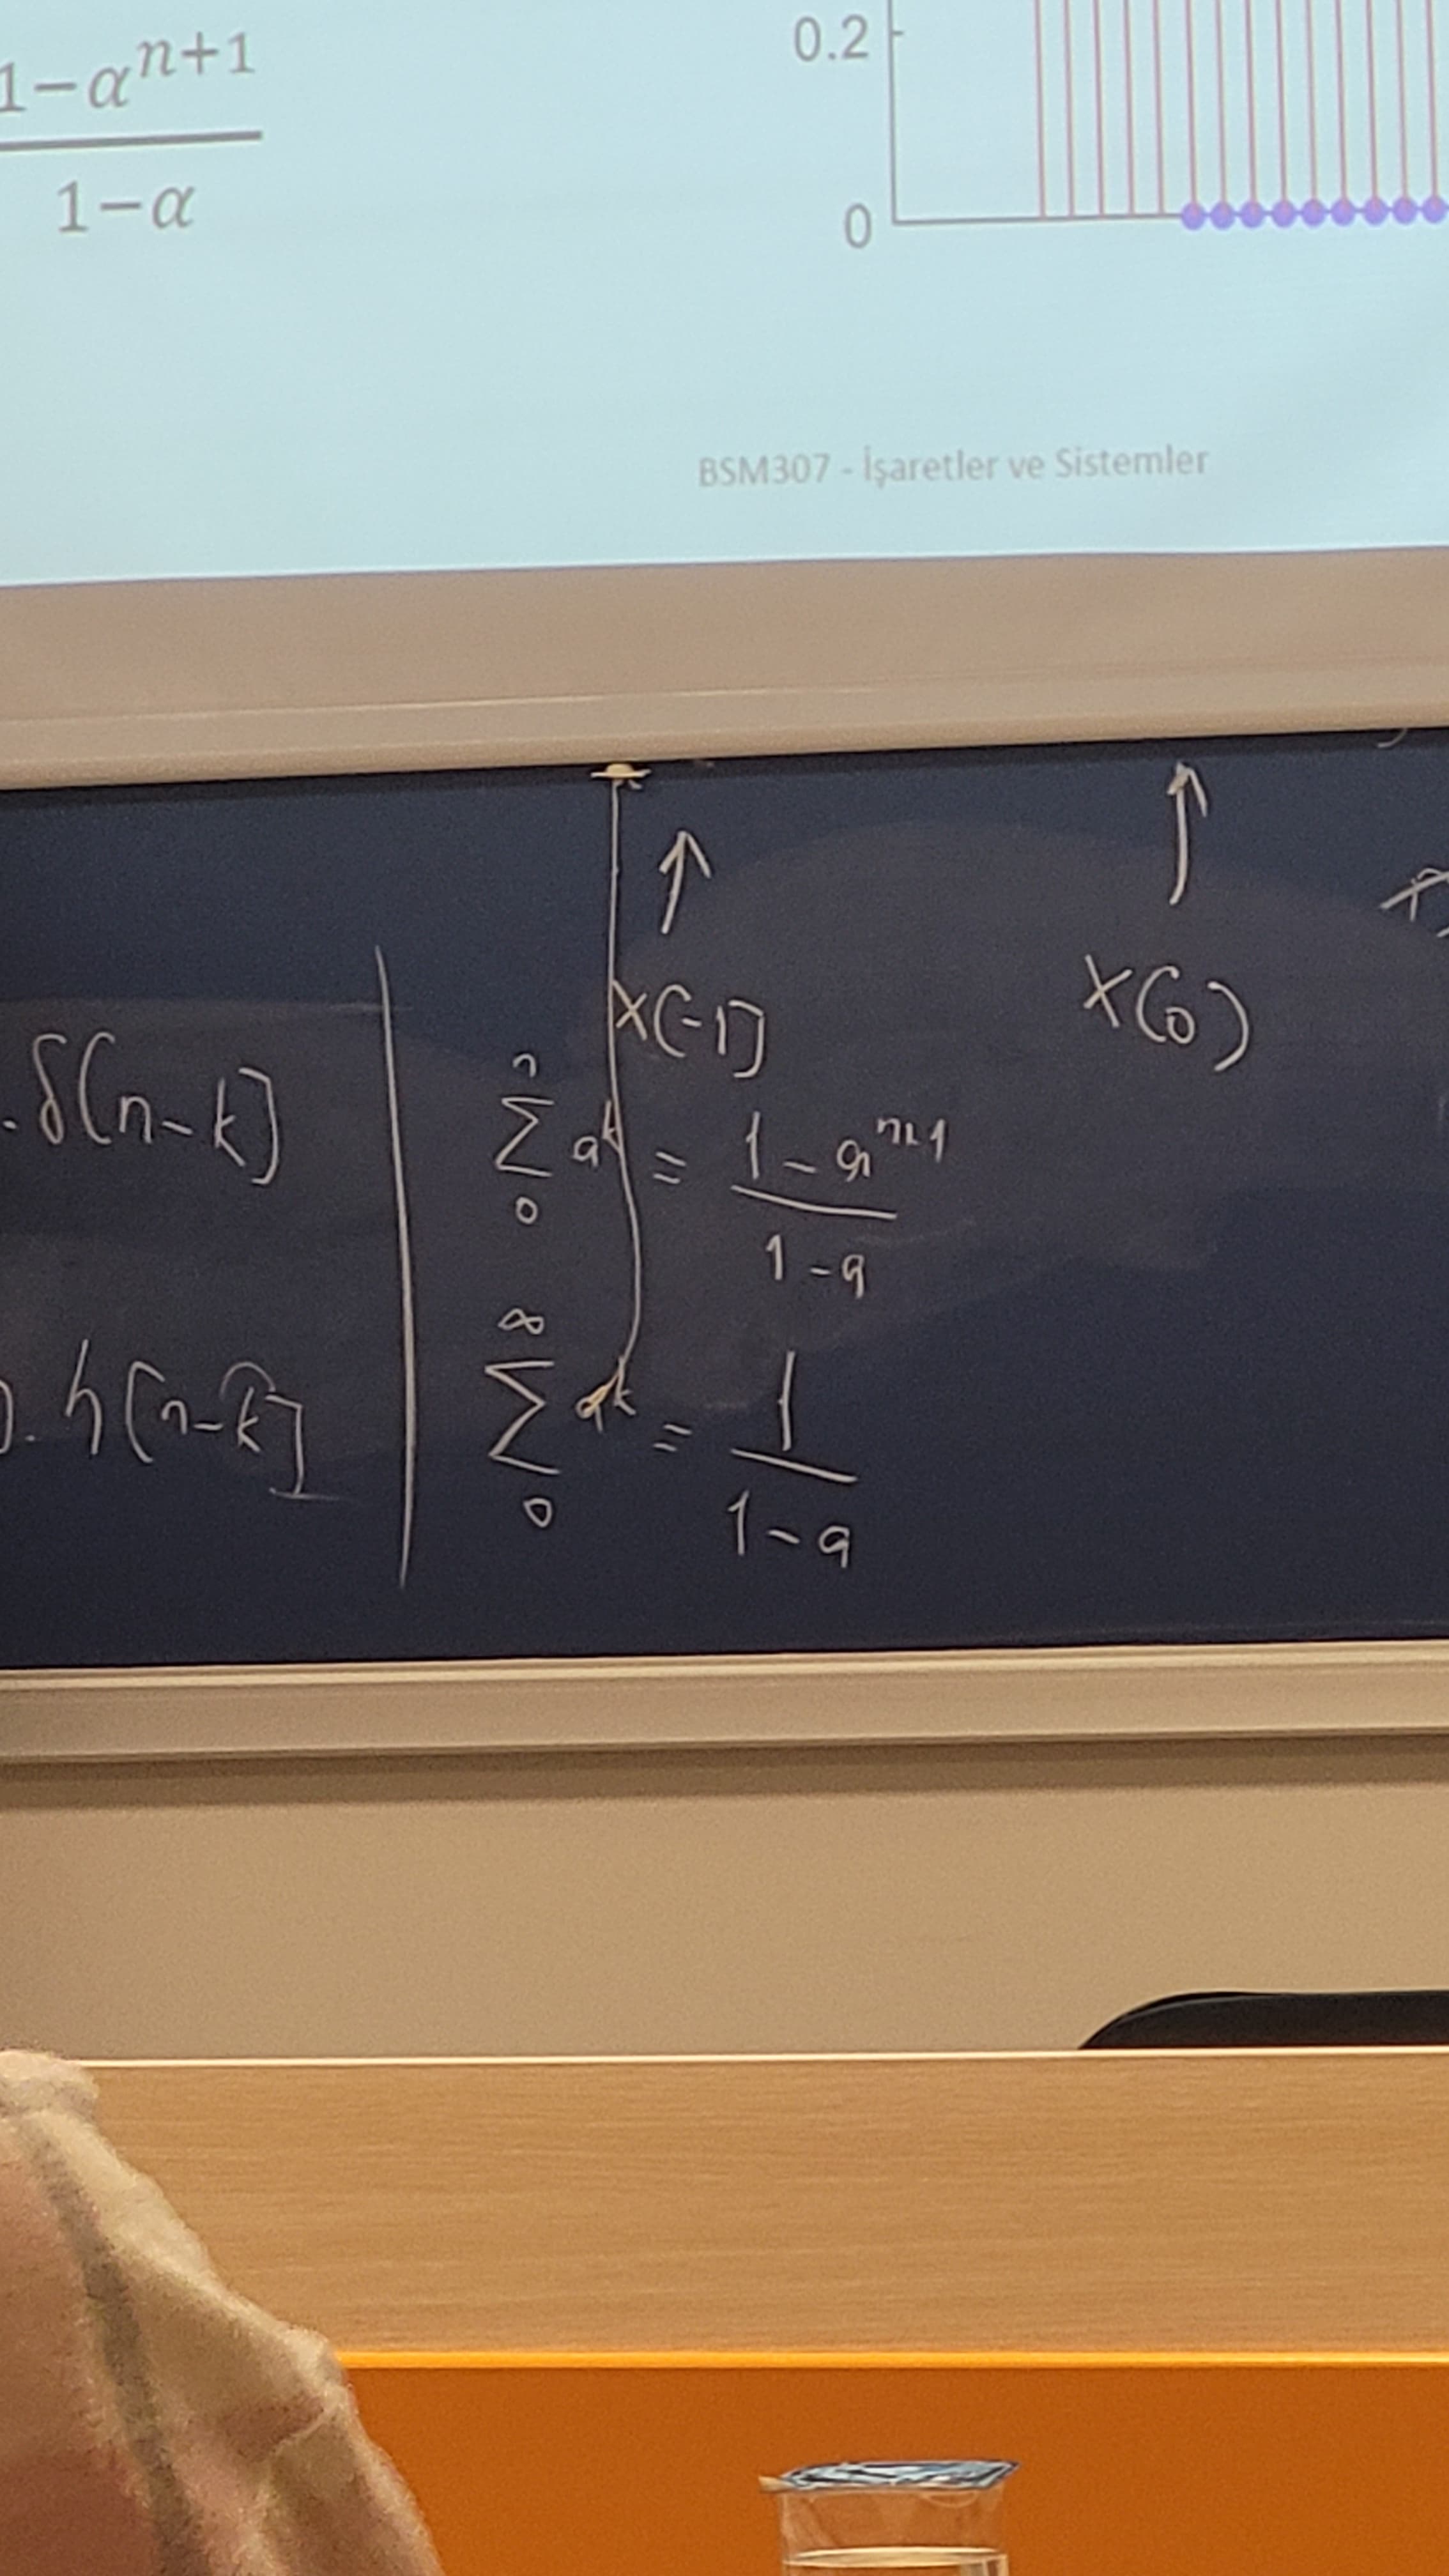 1−α^{n+1}
1−α
0.2
0
BSM307 - İşaretler ve Sistemler
x[-1]
x(0)
. δ[n-k]
n
∑ a^k = 1 - a^{n+1}
0
1 - a
. h[n-k]
∞
∑ a^k = 1
0
1 - a